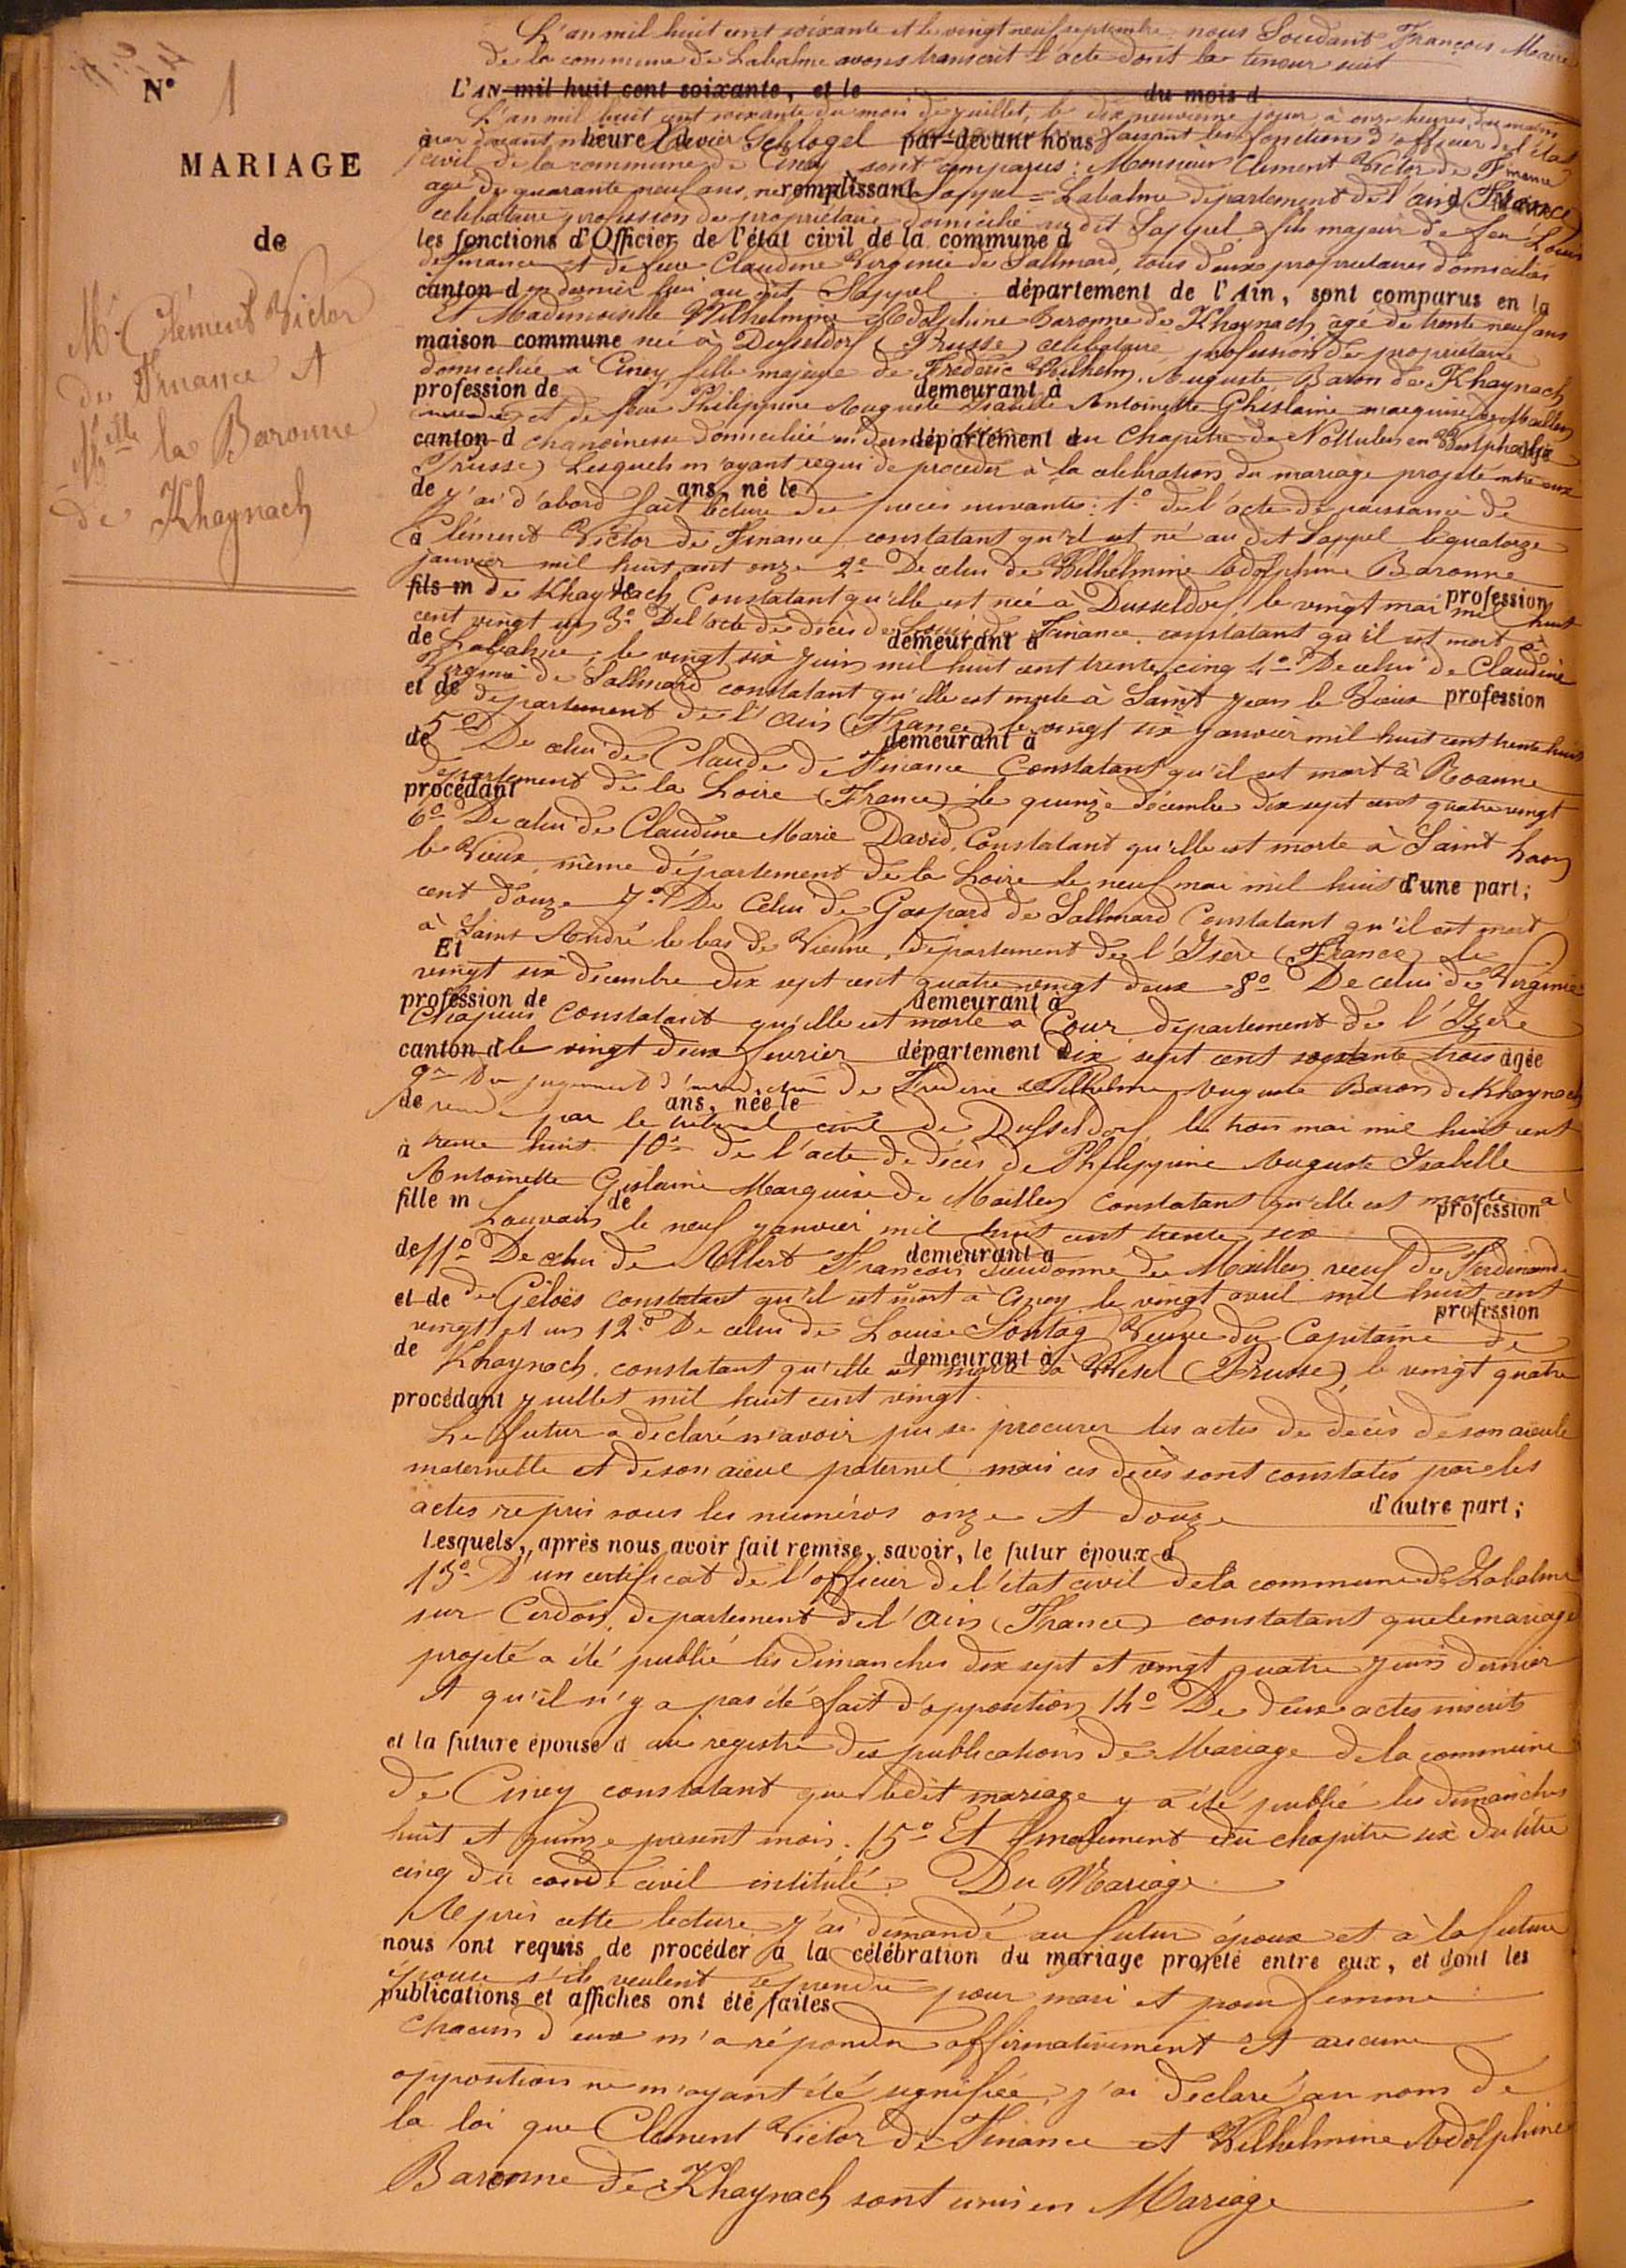 N° 1
MARIAGE
de
Mr Clément Victor
de Finance et
Melle la Baronne
de Khaynach
L'an mil huit cent soixante et le vingt neuf septembre nous Soudant François Maire
de la commune de Labalme avons transcrit l'acte dont la teneur suit
L'AN mil huit cent soixante, et le du mois d
L'an mil huit cent soixante du mois de juillet, le dix neuvième jour à onze heures du matin
à heure d par-devant nous
par devant Xavier Schlogel faisant les fonctions d'officier de l'état
civil de la commune de Ciney sont comparus : Monsieur Clement Victor de Finance
remplissant
agé de quarante neuf ans, né Sappel Labalme département de l'ain (France)
célibataire profession de propriétaire domicilié au dit Sappel, fils majeur de feu Louis
les fonctions d'Officier de l'état civil de la commune d
definance et de feue Claudine Virginie de Sallmard, tous deux propriétaires domiciliés
canton d en dernier lieu au dit Sappel département de l'Ain, sont comparus en la
Et Mademoiselle Wilhelmine Adolphine Baronne de Khaynach agé de trente neuf ans
maison commune née à Dusseldorf (Prusse) célibataire profession de propriétaire
domiciliée à Ciney, fille majeure de Frederic Wilhelm, Auguste Baron de Khaynach
profession de demeurant à
et de feue Philippine Auguste Isabelle Antoinette Ghislaine marquise de Maillen
canton d chanoinesse domiciliée département du Chapitre de Nottulen en Westphalie
(Prusse) Lesquels m'ayant requis de proceder à la celebration du mariage projeté entre eux
de ans, né le
j'ai d'abord fait lecture des pieces suivantes : 1° de l'acte de naissance de
à Clément Victor de Finance constatant qu'il est né au dit Sappel le quatorze
janvier mil huit cent onze 2° De celui de Wilhelmine Adolphine Baronne
fils m de profession
de Khaynach Constatant qu'elle est née à Dusseldorf le vingt mai mil huit
cent vingt un 3° Del'acte de décès de Louis de Finance constatant qu'il est mort à
de demeurant à
Labalme, le vingt six juin mil huit cent trente cinq 4° De celui de Claudine
Virginie de Sallmard constatant qu'elle est morte à Saint Jean le Vieux
et de profession
departement de l'Ain (France) le vingt six janvier mil huit cent trente huit
de demeurant à
5° De celui de Claude de Finance Constatant qu'il est mort à Roanne
procédant
departement de la Loire (France) le quinze décembre dix sept cent quatre vingt
6° De celui de Claudine Marie David, Constatant qu'elle est morte à Saint haon
le Vieux, même département de la Loire le neuf mai mil huit d'une part;
cent douze 7° De Celui de Gaspard de Sallmard Constatant qu'il est mort
à Saint André le bas de Vienne, département de l'Isère (France) le
Et
vingt six decembre dix sept cent quatre vingt deux 8° De celui de Virginie
profession de demeurant à
Chapuis Constatant qu'elle est morte à Cour departement de l'Isère
canton d le vingt deux fevrier département dix sept cent soixante trois âgée
9° Du jugement d'interdiction de Frederic Wilhelm Auguste Baron de Khaynach
de ans, née le
rendu par le tribunal civil de Dusseldorf le trois mai mil huit cent
à trente huit 10° de l'acte de décès de Philippine Auguste Isabelle
Antoinette Gislaine Marquise de Maillen Constatant qu'elle est morte à
fille m de profession
Louvain le neuf janvier mil huit cent trente six
de demeurant à
11° De celui de Albert François Dieudonné de Maillen veuf de Ferdinande
et de de Geloës constatant qu'il est mort à Ciney le vingt avril mil huit cent
profession
vingt et un 12° De celui de Louise Sontag Veuve du Capitaine de
de demeurant à
Khaynach, constatant qu'elle est morte à Wesel (Prusse) le vingt quatre
procédant juillet mil huit cent vingt.
Le futur a declaré n'avoir pu se procurer les actes de décès de son aieule
maternelle et de son aïeul paternel mais ces décès sont constatés par les
actes repris sous les numéros onze et douze d'autre part;
Lesquels, après nous avoir fait remise, savoir, le futur époux d
13° D'un certificat de l'officier de l'état civil de la commune de Labalme
sur Cerdon, departement de l'Ain (France) constatant que le mariage
projeté a été publié les dimanches dix sept et vingt quatre juin dernier
et qu'il n'y a pas été fait d'opposition 14° De deux actes inscrits
et la future épouse d au registre des publications de Mariage de la commune
de Ciney constatant que ledit mariage y a été publié les dimanches
huit et quinze present mois. 15° Et finalement du chapitre six du titre
cinq du code civil intitulé : Du Mariage.
Après cette lecture j'ai demandé au futur époux et à la future
nous ont requis de procéder à la célébration du mariage projeté entre eux, et dont les
épouse s'ils veulent se prendre pour mari et pour femme
publications et affiches ont été faites
chacun d'eux m'a répondu affirmativement et aucune
opposition ne m'ayant été signifiée, j'ai declaré au nom de
la loi que Clement Victor de Finance et Wilhelmine Adolphine
Baronne de Khaynach sont unis en Mariage